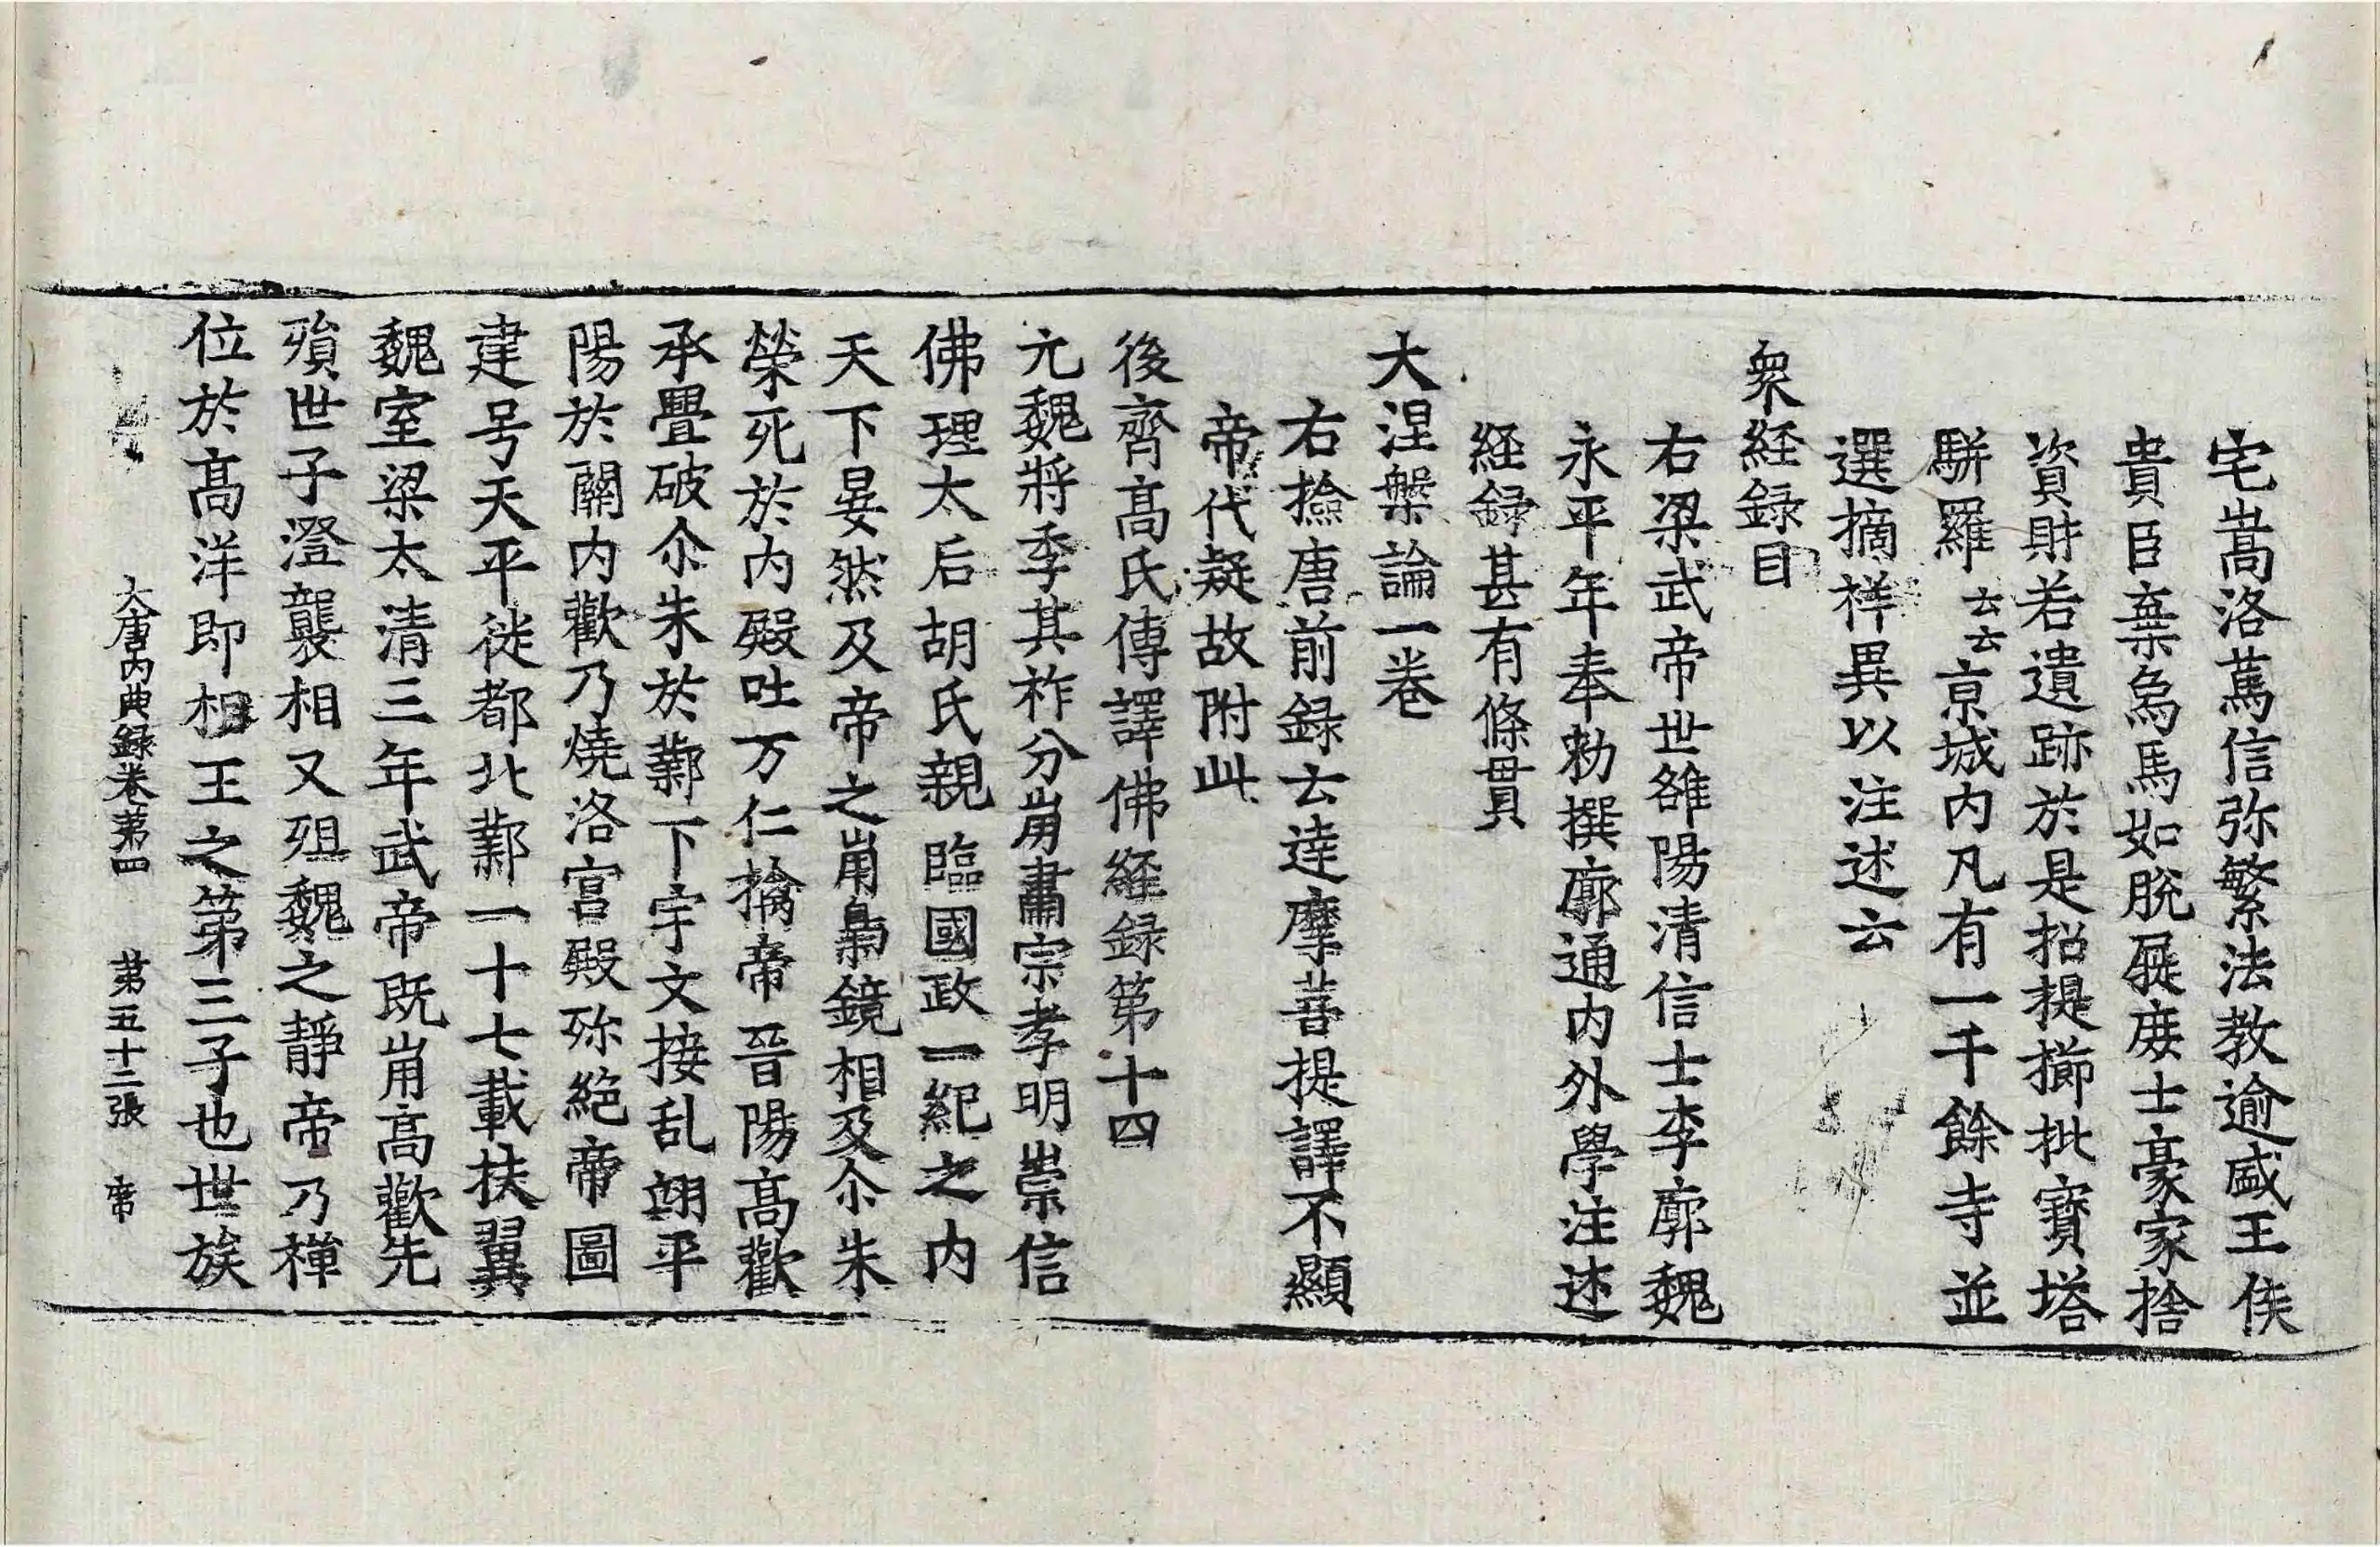 宅嵩洛篤信弥繁法教逾盛王侯
貴臣棄烏馬如脫屣庶士豪家捨
資財若遺跡於是招提擳枇寶塔
駢羅云云京城内凡有一千餘寺並
選摘样異以注述云
衆経録目
右梁武帝世雒陽清信士李廓魏
永平年奉勑撰廓通内外學注述
経録甚有條貫
大涅槃論一卷
右撿唐前録云達摩菩提譯不顯
帝代疑故附此
後齊髙氏傳譯佛経録第十四
元魏將季其祚分崩肅宗孝明崇信
佛理太后胡氏親臨國政一紀之内
天下晏然及帝之崩梟鏡相及尒朱
榮死於内殿吐万仁擒帝晉陽髙歡
承釁破尒朱於鄴下宇文接乱翊平
陽於關内歡乃燒洛宫殿弥絶帝圖
建号天平徙都北鄴一十七載扶翼
魏室梁太清三年武帝既崩高歡先
殞世子澄襲相又殂魏之靜帝乃禅
位於髙洋即相王之第三子也世族
大唐内典録卷苐四　苐五十二張　帝